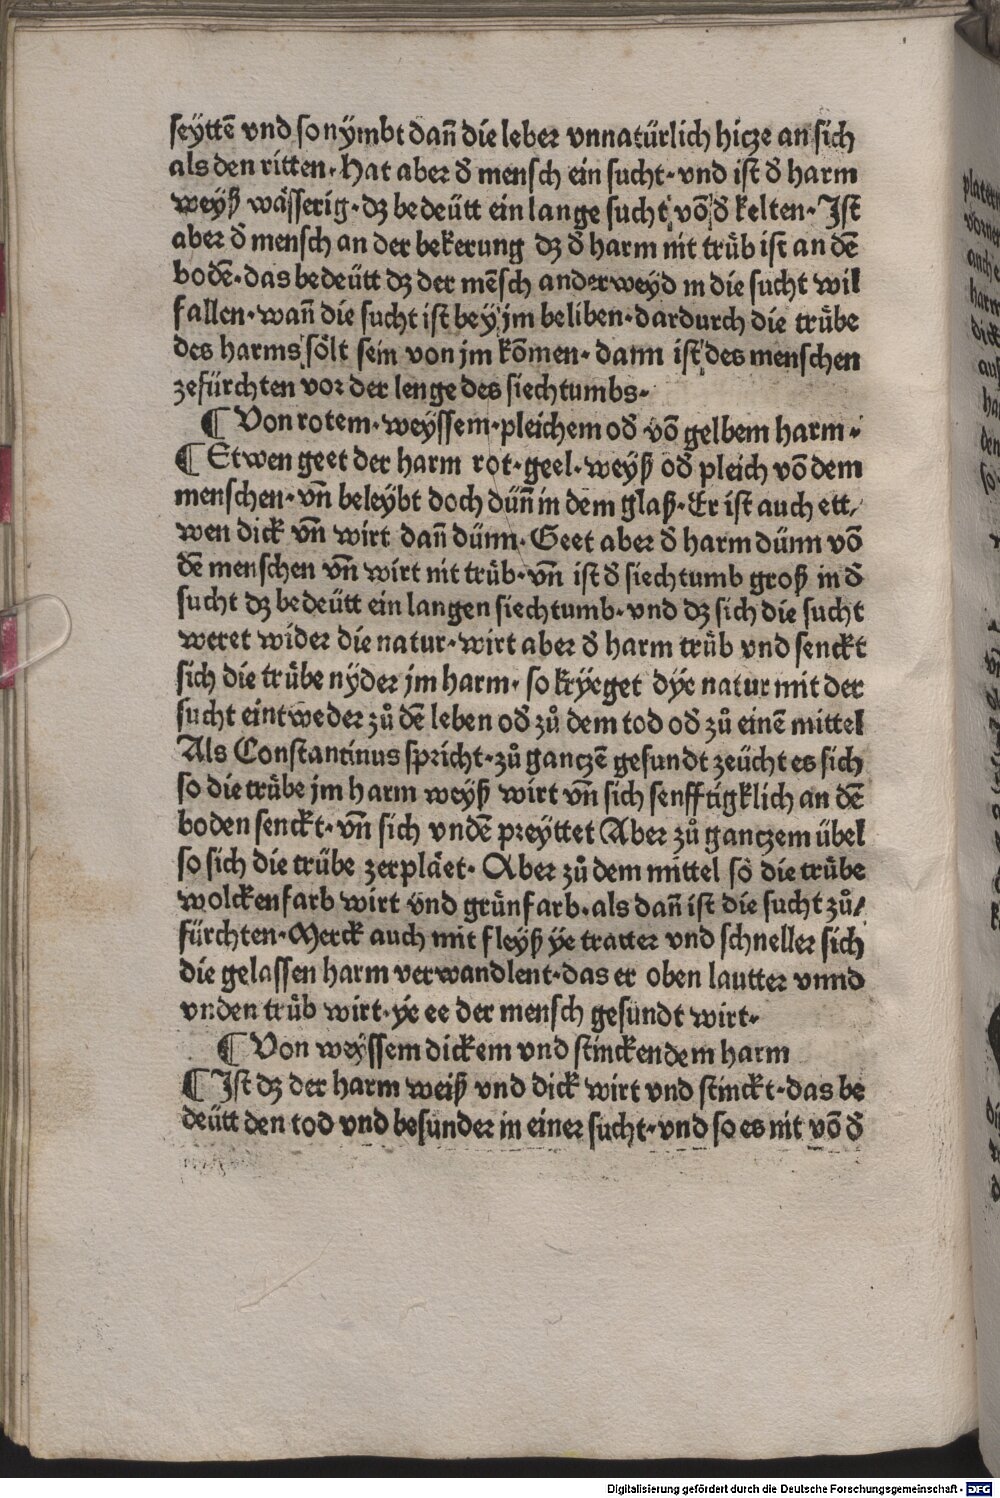 seÿttē vnd so nÿmbt dañ die leber vnnatürlich hicze an sich
als den ritten. Hat aber đ mensch ein sucht. vnd ist đ harm
weÿß wässerig. dz bedeütt ein lange sucht võ đ kelten. Ist
aber đ mensch an der bekerung dz đ harm nit trüb ist an dē
bodē. das bedeütt dz der mēsch anderweyd in die sucht wil
fallen. wañ die sucht ist beÿ jm beliben. dardurch die trübe
des harms sölt sein von jm kōmen. dann ist des menschen
zefürchten vor der lenge des siechtumbs.
¶ Von rotem. weÿssem. pleichem ođ võ gelbem harm.
¶ Etwen geet der harm rot. geel. weÿß ođ pleich võ dem
menschen. vñ beleÿbt doch düñ in dem glaß. Er ist auch ett/
wen dick vñ wirt dañ dünn. Geet aber đ harm dünn võ
dē menschen vñ wirt nit trüb. vñ ist đ siechtumb groß in đ
sucht dz bedeütt ein langen siechtumb. vnd dz sich die sucht
weret wider die natur. wirt aber đ harm trüb vnd senckt
sich die trübe nÿder jm harm. so krÿeget dÿe natur mit der
sucht eintweder zů dē leben ođ zů dem tod ođ zů einē mittel
Als Constantinus spricht. zů ganczē gesundt zeücht es sich
so die trübe jm harm weÿß wirt vñ sich senfftigklich an dē
boden senckt. vñ sich vndē preÿttet Aber zů ganczem übel
so sich die trübe zerpläet. Aber zů dem mittel so die trübe
wolckenfarb wirt vnd grünfarb. als dañ ist die sucht zů/
fürchten. Merck auch mit fleÿß ÿe tratter vnd schneller sich
die gelassen harm verwandlent. das er oben lautter vnnd
vnden trüb wirt. ÿe ee der mensch gesundt wirt.
¶ Von weÿssem dickem vnd stinckendem harm
¶ Ist dz der harm weiß vnd dick wirt vnd stinckt. das be
deütt den tod vnd besunder in einer sucht. vnd so es nit võ đ
Digitalisierung gefördert durch die Deutsche Forschungsgemeinschaft - DFG